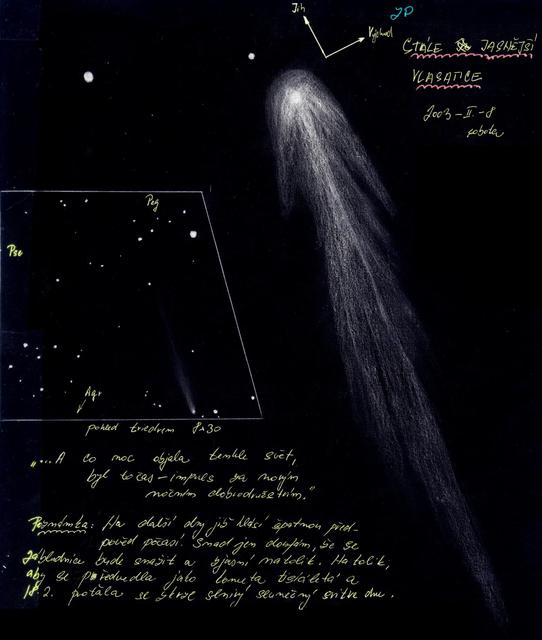 Jih
JD
Východ
STÁLE JASNĚJŠÍ
VLASATICE
2003-II.-8
sobota
Peg
Psc
Aqr
pohled triedrem 8x30
"...A co noc objala tenhle svět,
byl to čas - impuls za novým
nočním dobrodružstvím."
Poznámka: Na další dny již hlásí špatnou před-
pověď počasí. Snad jen doufám, že se
bude snažit a zjasní natolik. Natolik,
aby se předvedla jako kometa tisíciletí a
18.2. protála se skrze silný sluneční svit dne.